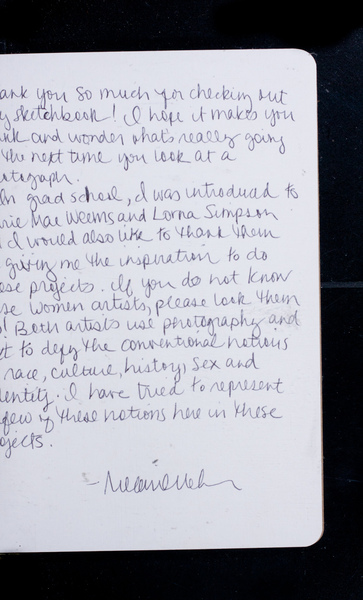 ank you so much for checking out
y sketchbook! I hope it makes you
nk and wonder what's really going
the next time you look at a
otograph.
In grad school, I was introduced to
rie Mae Weems and Lorna Simpson
I would also like to thank them
giving me the inspiration to do
ose projects. If you do not know
se women artists, please look them
! Both artists use photography and
t to defy the conventional notions
race, culture, history, sex and
dentity. I have tried to represent
few of these notions here in these
ojects.